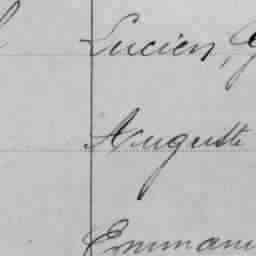 Lucien,
Auguste
Emmanu